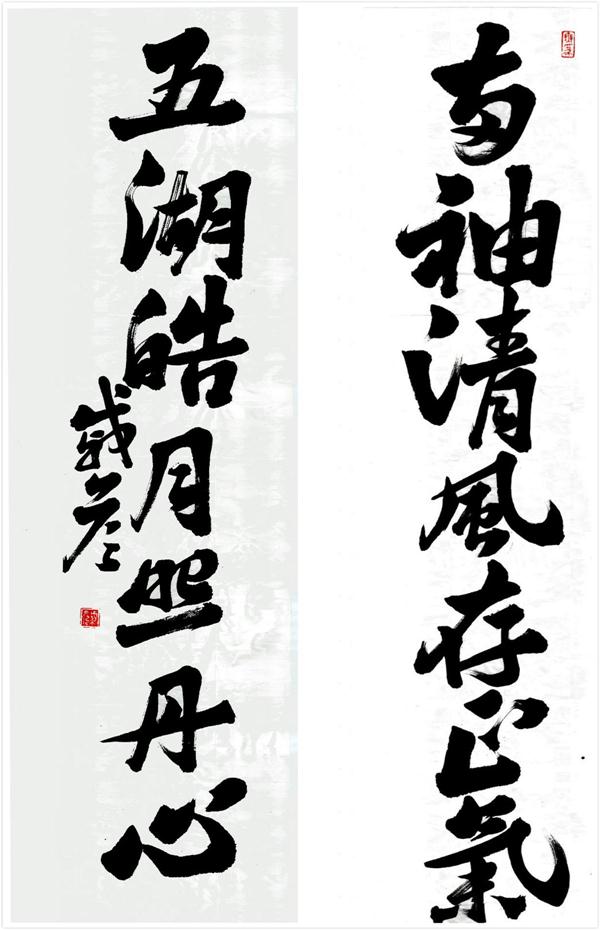 两袖清风存正氣
五湖皓月照丹心